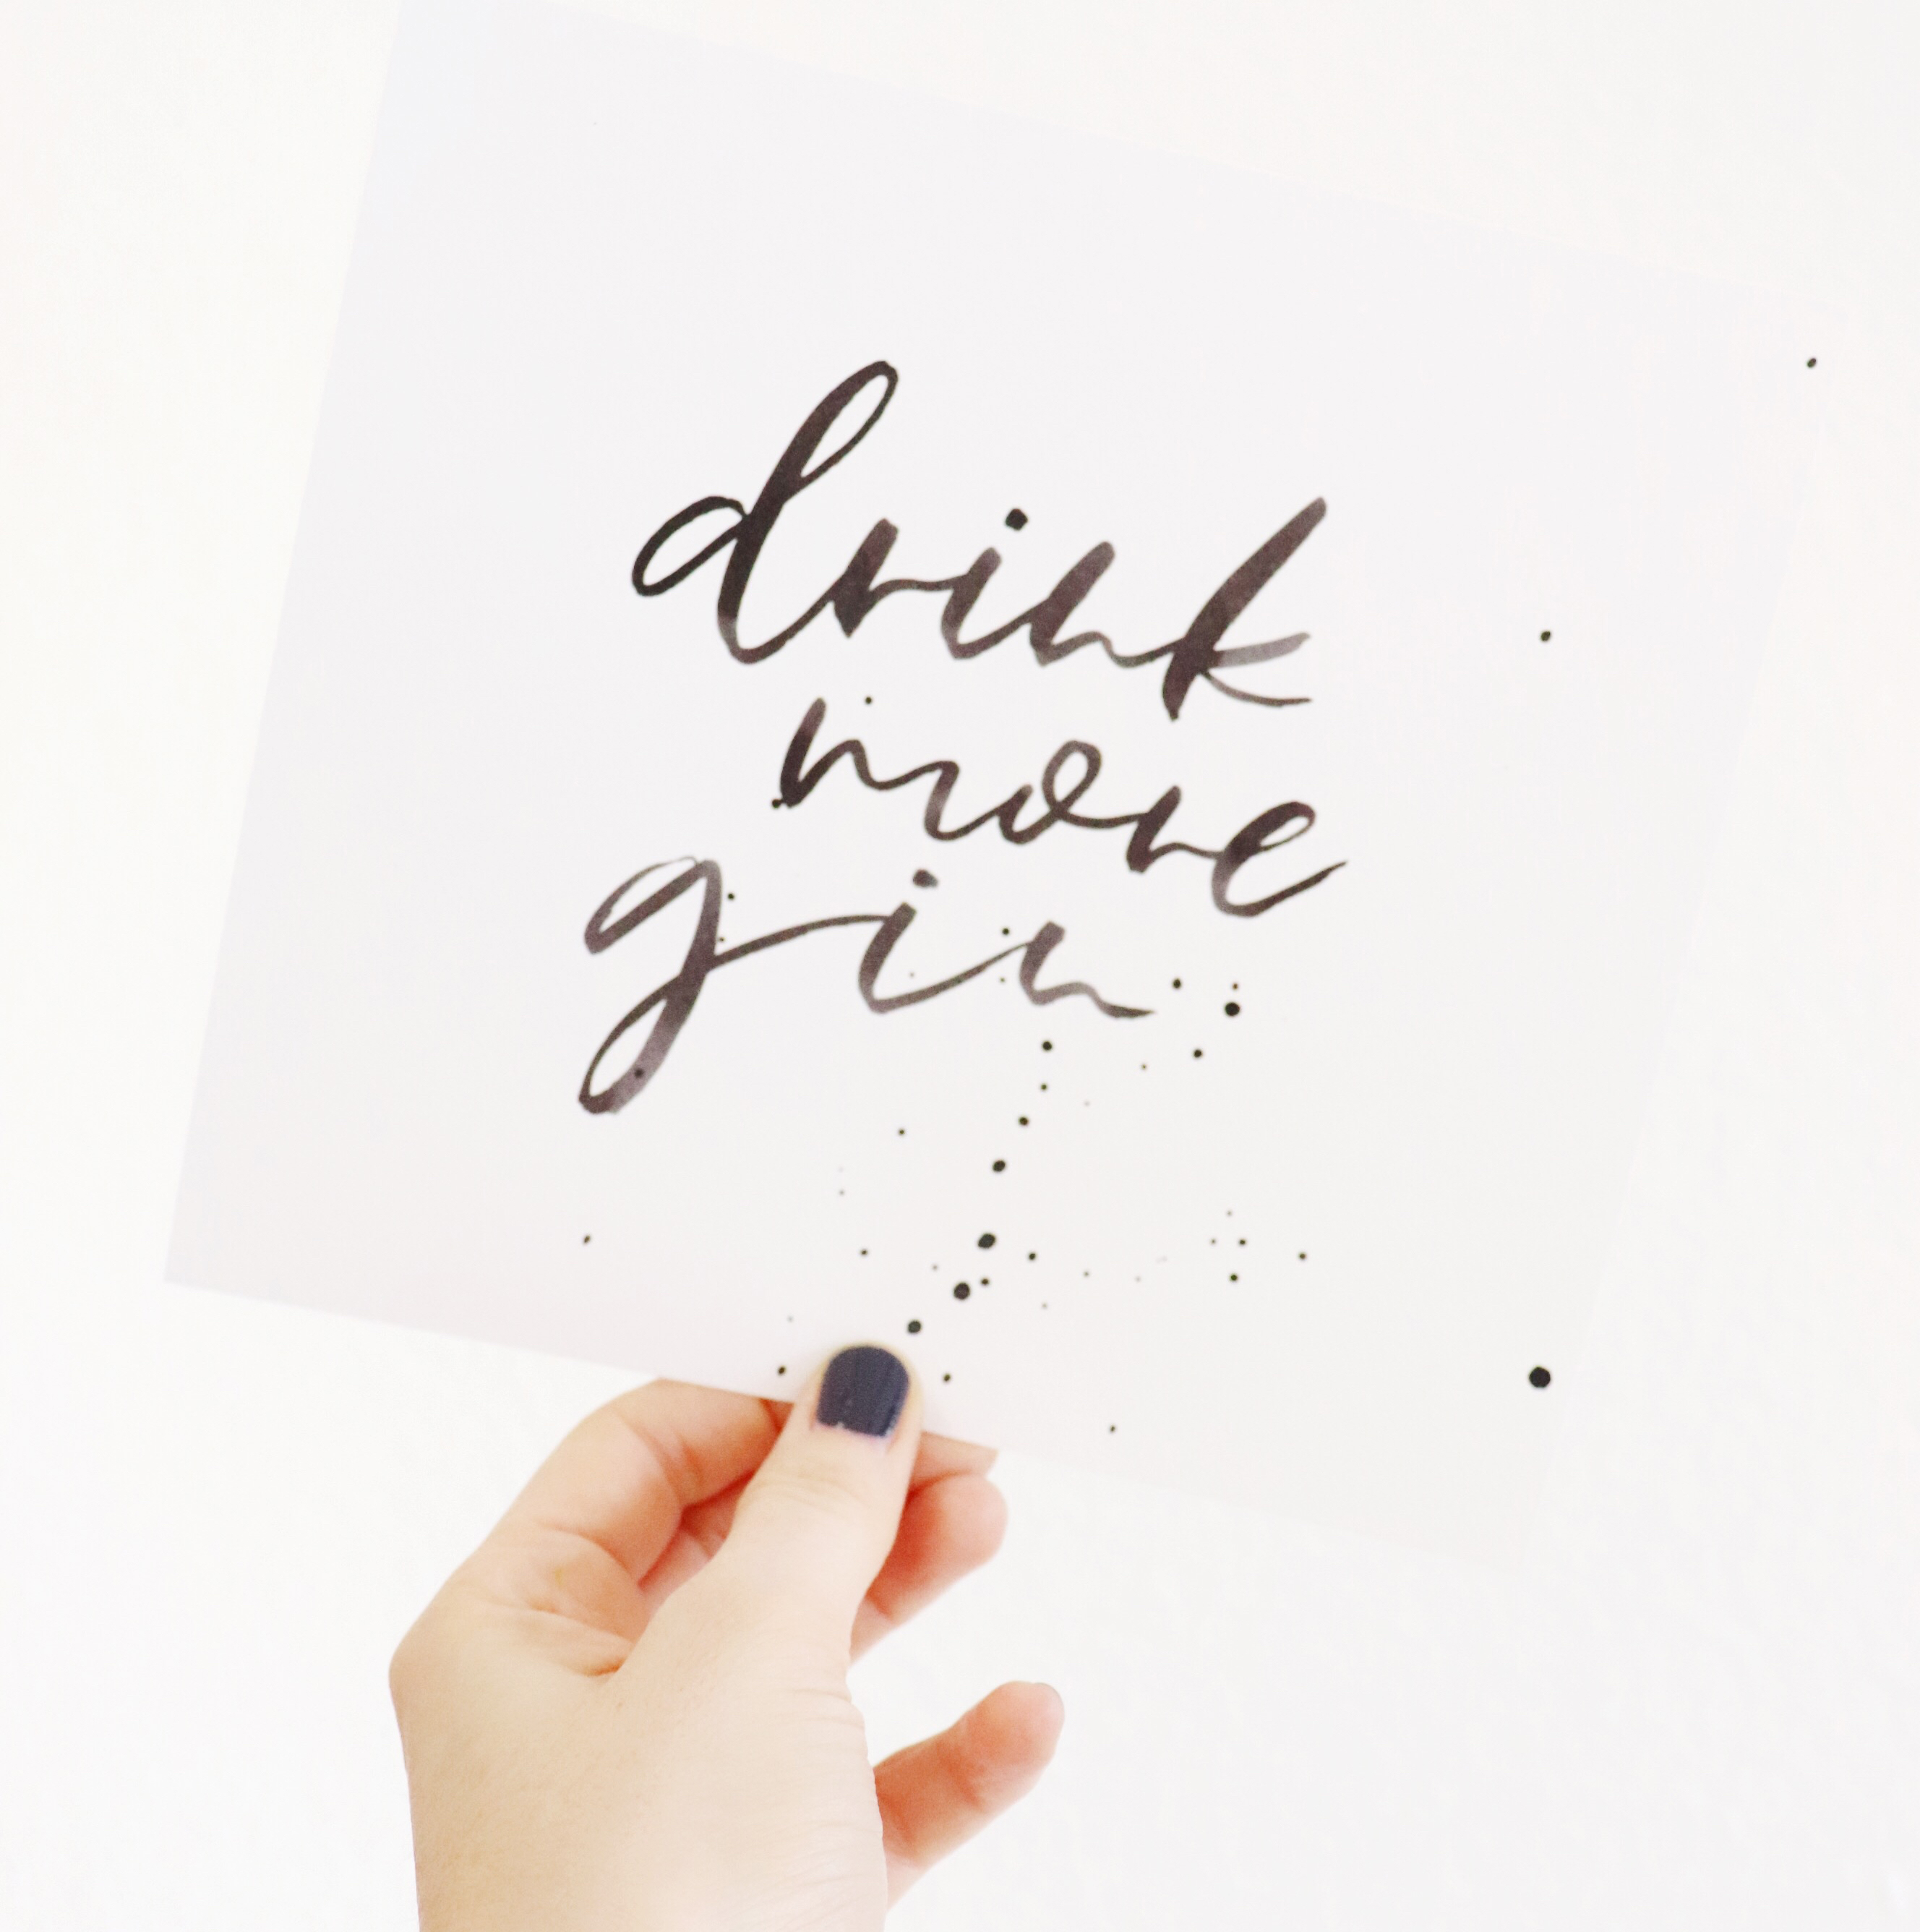 drink
more
gin